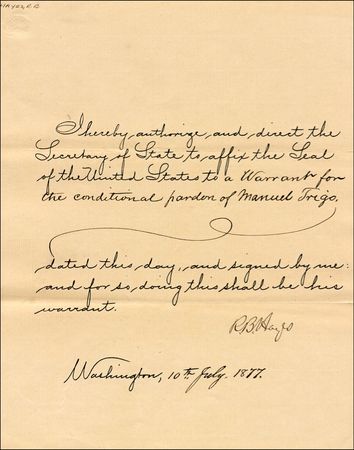 HAYES, R.B.
I hereby authorize and direct the
Secretary of State to affix the Seal
of the United States to a Warrant for
the conditional pardon of Manuel Trigo,
dated this day, and signed by me:
and for so doing this shall be his
warrant.
R.B. Hayes
Washington, 10th July. 1877.